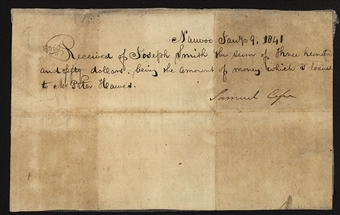 Nauvoo Jany 9, 1841
Received of Joseph Smith the sum of three hundred
and fifty dollars, being the amount of money which I loaned
to Mr Peter Hawes.
Samuel